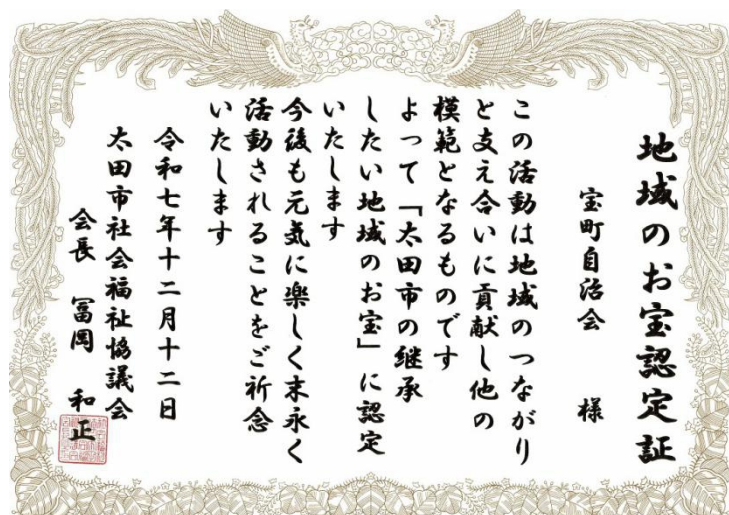 地域のお宝認定証
宝町自治会　様
この活動は地域のつながり
と支え合いに貢献し他の
模範となるものです
よって「太田市の継承
したい地域のお宝」に認定
いたします
今後も元気に楽しく末永く
活動されることをご祈念
いたします
令和七年十二月十二日
太田市社会福祉協議会
会長　冨岡　和正